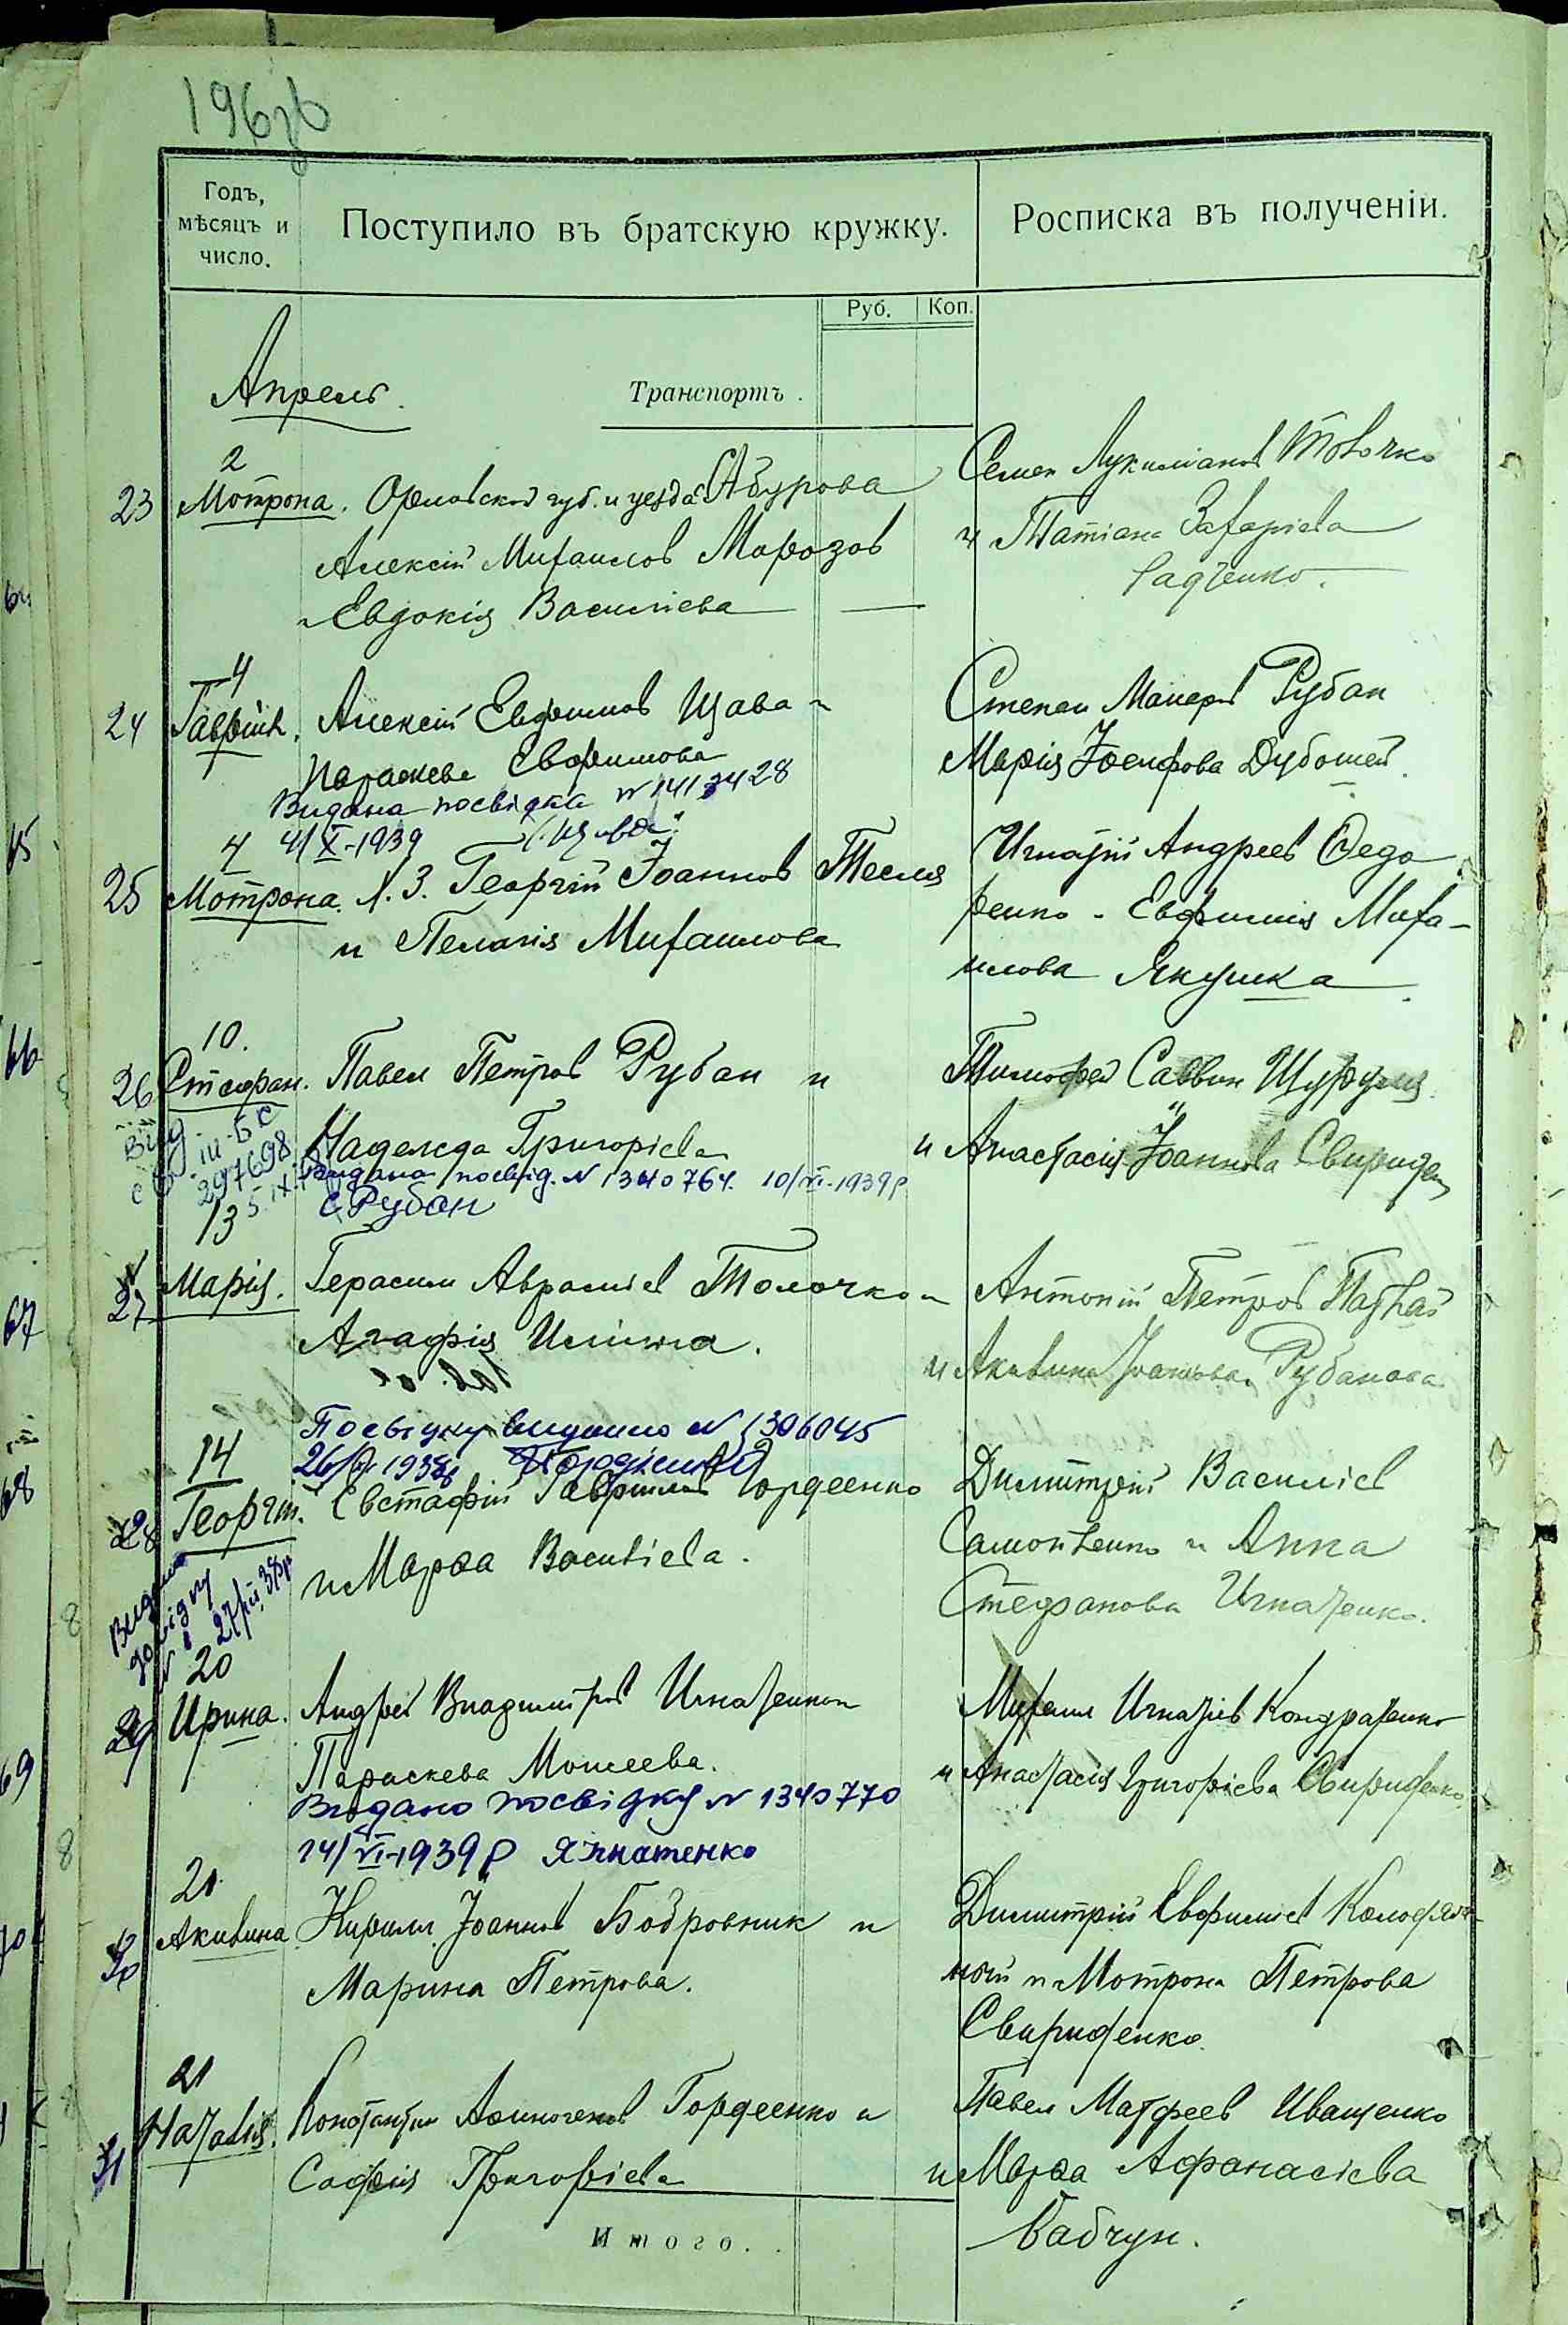 196зв
Годъ, мѣсяцъ и число.
Поступило въ братскую кружку.
Росписка въ полученіи.
Руб. Коп.
Апрель.
Транспортъ.
2
23 Мотрона. Орловской губ. и уезда
Алексій Михаилов Морозов
и Евдокія Василіева
Семен Лукианов Толочко
и Татіана Захаріева
Радченко.
4
24 Гавріил. Алексій Евдокимов Щава и
Параскева Евфимова
Видана посвідка N
4/X-1939
Степан Макаров Рубан
Марія Іосифова
4
25 Мотрона. Л. З. Георгій Іоаннов Тесля
и Пелагія Михаилова
Игнатій Андреев Федо
ренко - Евфимия Миха-
илова Якушка
10.
26 Стефан. Павел Петров Рубан и
Надежда Григоріева
Видана посвід. N 1340764. 10/VI-1939р
Є Рубан
297698
Тимофей Саввин
и Анастасия Іоаннова Свириден
13
27 Марія. Герасим Авраміев Толочко и
Агафія Илліина.
Антоній Петров
и Акилина Іоаннова Рубанова
Посвідку видано N 1306045
26/VI 1938р
14
28 Георгій. Евстафій Гаврилов Гордеенко
и Марѳа Василіева.
Видано
довідку
N 27/III 38р
Димитрій Василіев
Самойленко и Анна
Стефанова Игнатенко.
20
29 Ирина. Андрей Владимиров Игнатенко и
Параскева Моисеева.
Видано посвідку N 1340770
14/VI-1939р Я Ігнатенко
Михаил Игнатіев Кондратенко
и Анастасія Григоріева Свириденко
21
30 Акилина Кирилл Іоаннов Бобровник и
Марина Петрова.
Димитрій Евфимиев Колодяж-
ной и Мотрона Петрова
Свириденко.
21
31 Наталія. Константин Афиногенов Гордеенко и
Софія Григоріева
Павел Матфеев Иващенко
и Марѳа Афанасіева
Бабчук.
Итого..